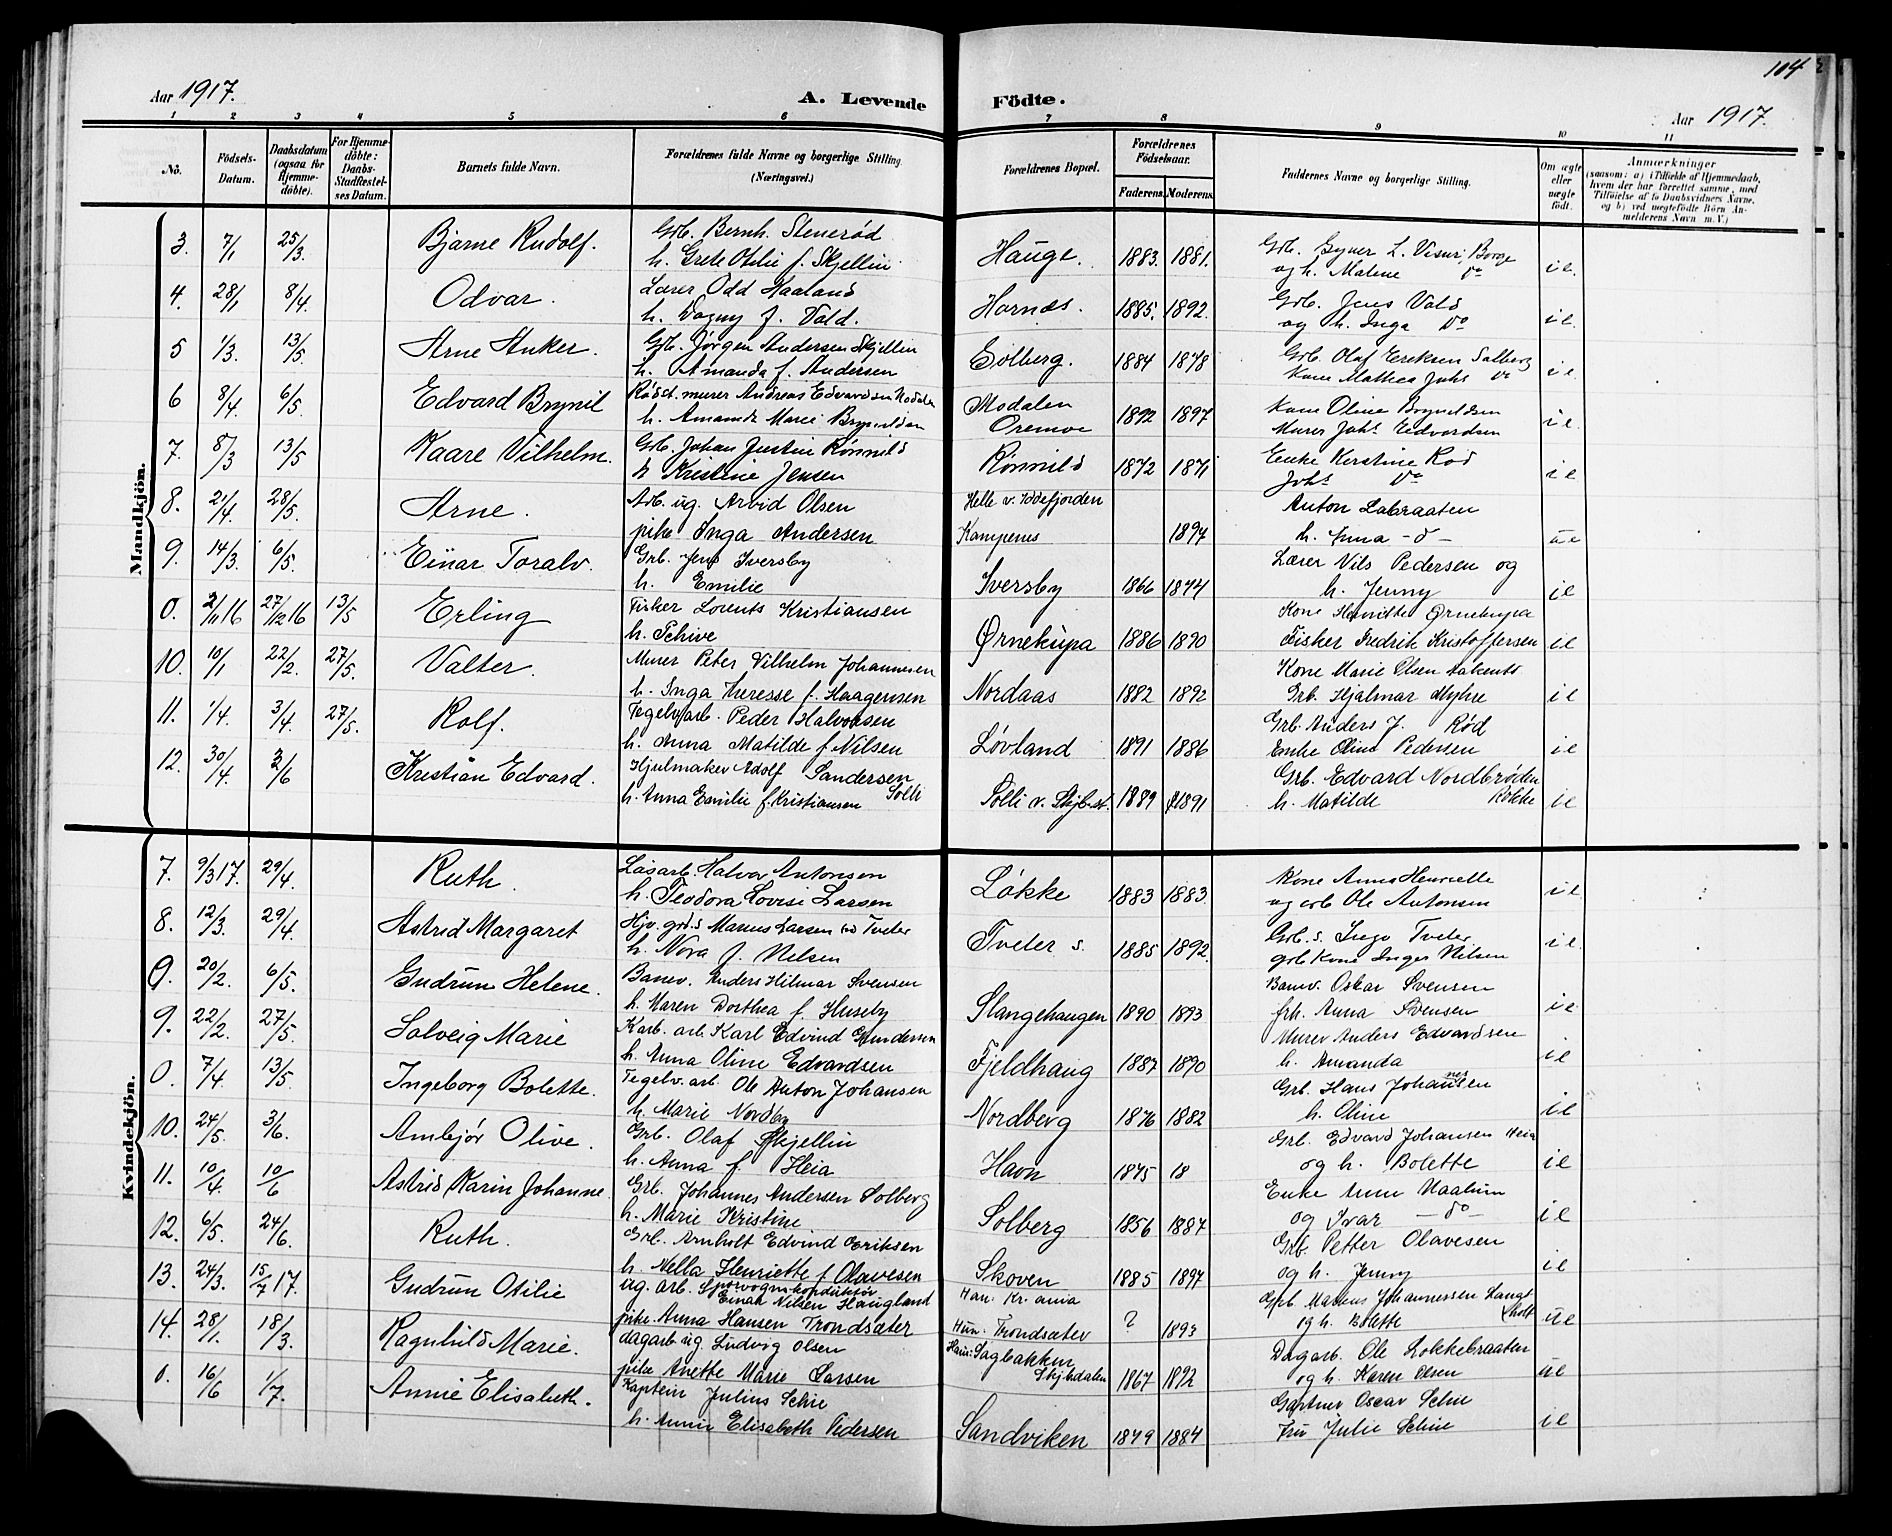 104
Aar 1917.
A. Levende Födte.
Aar 1917.
1 2 3 4 5 6 7 8 9 10 11
No.
Födsels-Datum.
Daabsdatum (ogsaa for Hjemme-döbte).
For Hjemme-döbte: Daabs-Stadfestel-ses Datum.
Barnets fulde Navn.
Forældrenes fulde Navne og borgerlige Stilling. (Næringsvei.)
Forældrenes Bopæl.
Forældrenes Födselsaar.
Faderens. Moderens.
Faddernes Navne og borgerlige Stilling.
Om ægte eller uægte födt.
Anmærkninger
(saasom: a) i Tilfælde af Hjemmedaab,
hvem der har forrettet samme, med
Tilföielse af to Daabsvidners Navne,
og b) ved uægtefödte Börn An-
melderens Navn m. V.)
Mandkjön.
3. 7/1 25/3. Bjarne Rudolf. Grb. Bernh. Stenerød
h. Grete Otilie f. Skjellin. Hauge. 1883. 1881. Grb. L. Borge
og h. Malene do i e.
4. 28/1 8/4. Odvar. Lærer Odd Haaland
h. Dagny f. Vold. Hornæs. 1885. 1892. Grb. Jens Vold
og h. Inga Do i e.
5 1/3. 13/5. Arne Anker. Grb. Jørgen Andersen Skjellin
h. Amanda f. Andersen Solberg. 1884 1878 Grb. Olaf Ereksen Solberg
Kone Mathea Johs Do i e
6 8/4. 6/5. Edvard Brynil Rødst. murer Andreas Edvardsen Modalen
h. Amanda Marie Brynildsen Modalen
Oremoe 1892 1897 Kone Oline Bryneldsen
Murer Johs Edvardsen i e
7. 8/3 13/5 Kaare Vilhelm. Grb. Johan Justin Rønnild
h Kristine Jensen Rønnild 1872 1871 Enke Kerstine Rød
Johs Do i e
8. 21/4. 28/5. Arne. Arb. ug. Arvid Olsen
pike Inga Andersen Helle v. Iddefjorden
Kampenes 1897 Anton Labraaten
h. Anna - d - u e
9. 14/3. 6/5. Einar Toralv. Grb. Jens Iversby
h. Emilie Iversby 1866 1874 Lærer Nils Pedersen og
h. Jenny i e
0. 2/11 16 27/12 16 13/5 Erling Fisker Lorents Kristiansen
h. Schive Ørnekupa 1886 1890 Kone Henridte Ørnekupa
Fisker Fredrik Kristoffersen i e
10. 10/1 22/2. 27/5. Valter. Murer Peter Vilhelm Johannesen
h. Inga Theresse f. Haagensen Nordaas 1882 1892 Kone Marie Olsen
Grb. Hjalmar Myhre i e
11. 1/4. 3/4. 27/5. Rolf. Tegelv. arb. Peder Halvorsen
h. Anna Matilde f. Nilsen Løvland 1891 1886 Grb. Anders J. Rød
Enke Oline Pedersen i e
12. 30/4. 3/6 Kristian Edvard. Hjulmaker Adolf Sandersen
h. Anna Emilie f. Kristiansen Solli Solli v. Skjb. st. 1889 1891 Grb. Edvard Nordbrøden
h. Matilde Rokke i e
Kvindekjön.
7. 9/3 17. 29/4. Ruth. Løsarb. Halvor Antonsen
h. Teodora Lovise Larsen Løkke 1883 1883. Kone Anna Henriette
og arb Ole Antonsen i e
8. 12/3. 29/4. Astrid Margaret Hjv. grd.s Marius Larsen Tveter
h. Nora f. Nilsen Tveter s. 1885 1892. Grb. s. Inga Tveter
grb Kone Inger Nilsen i e.
9. 20/2. 6/5. Gudrun Helene. Banev. Anders Hilmar Svensen
h. Maren Dorthea f. Huseby Slangehaugen 1890 1893 Banev. Oskar Svensen
frk. Anna Svensen i e
9. 22/2. 27/5. Solveig Marie Karb. arb. Karl Edvind Gundersen
h. Anna Oline Edvardsen Fjeldhaug 1887 1890 Murer Anders Edvardsen
h. Amanda i e
0. 7/4. 13/5. Ingeborg Bolette. Tegelv. arb. Ole Anton Johansen
h. Marie Nordby Nordberg 1876 1882 Grb. Hans Johannesen
h. Oline i e
10. 24/5. 3/6. Ambjør Olive. Grb. Olaf Skjellin
h. Anna f. Heia Havn 1875 18 Grb. Edvard Johansen Heia
og h. Bolette i e
11. 10/4. 10/6 Astrid Karin Johanne. Grb. Johannes Andersen Solberg
h. Marie Kristine Solberg 1856 1887 Enke Anne Maalum
og Ivar - do - i e
12. 6/5. 24/6. Ruth. Grb. Arnholt Edvind Eriksen
h. Nella Henriette f. Olavesen Skoven 1885 1897 Grb. Petter Olavesen
og h. Jenny i e
13. 24/3. 15/7 17. Gudrun Otilie ug. arb. Sporvognskonduktør
Einar Nilsen Haugland
pike Anna Hansen Trondsæter Han: Kr. ania
Hun: Trondsæter ? 1893 Grb Marius Johannessen Langholt
og h. Bolette u e
14. 28/1. 18/3. Ragnhild Marie. dagarb ug. Ludvig Olsen
pike Anette Marie Larsen Ham: Sagbakken
Skjebdalen 1867 1892 Dagarb. Ole Løkkebraaten
og h. Karen Olsen u e
0. 16/6 1/7. Annie Elisabeth. Kaptein Julius Schie
h. Annie Elisabeth Pedersen Sandviken 1879 1884 Gartner Oscar Schie
Fru Julie Schie i e